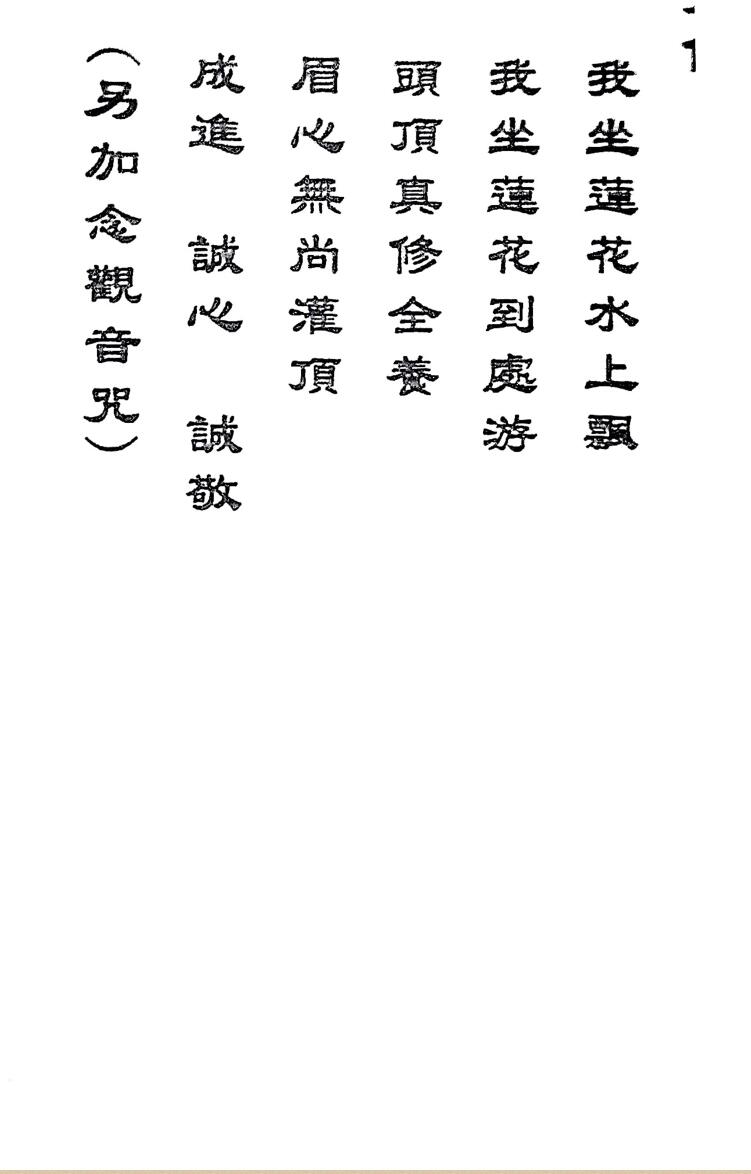 我坐蓮花水上飄
我坐蓮花到處游
頭頂真修全養
眉心無尚灌頂
成進　誠心　誠敬
（另加念觀音咒）